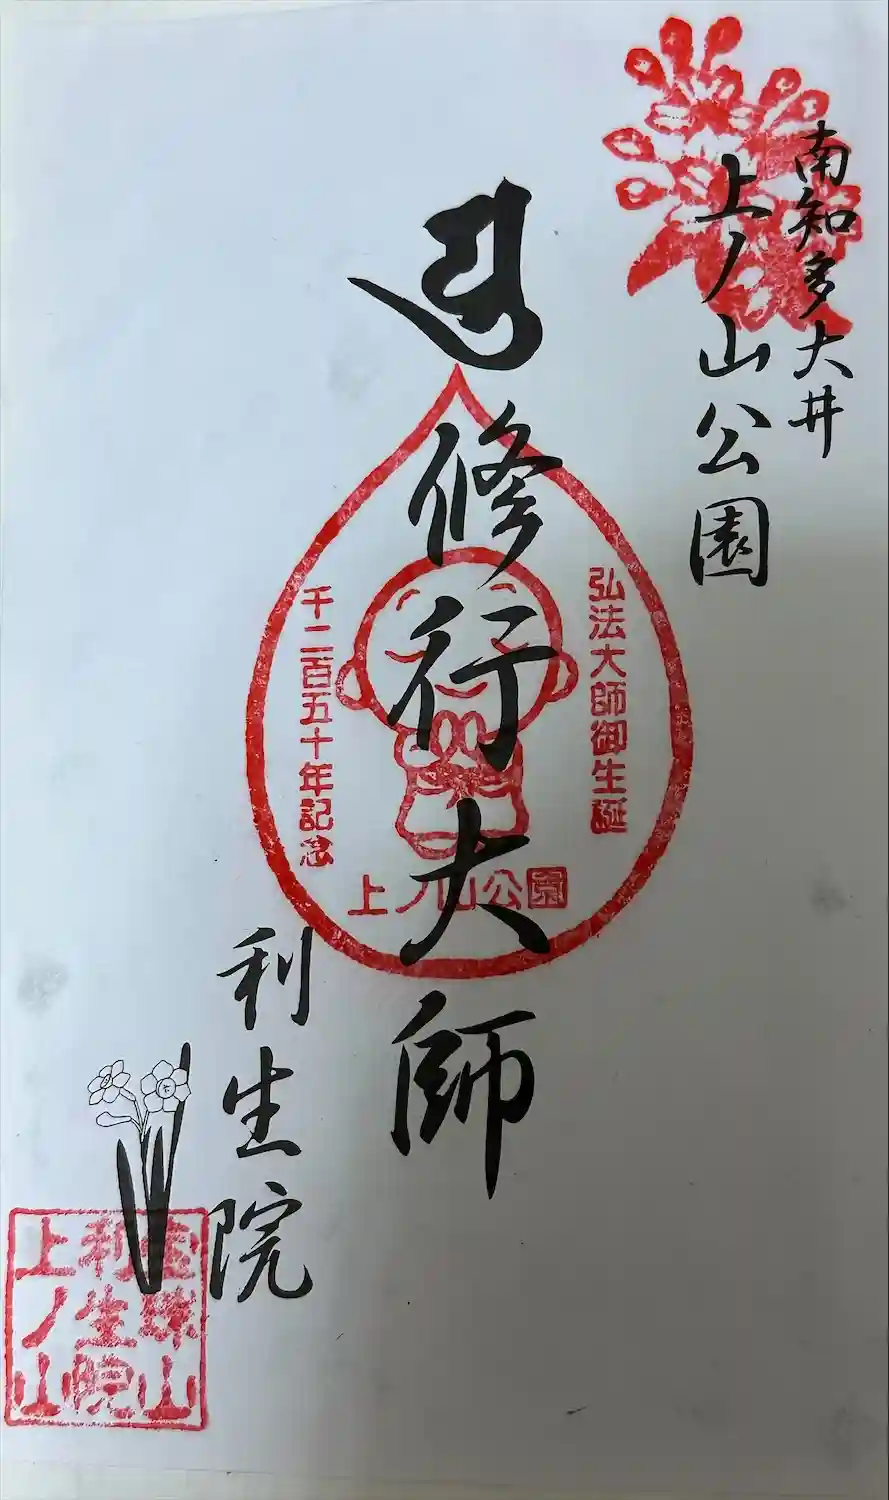 南知多大井
上ノ山公園
修行大師
弘法大師御生誕
千二百五十年記念
上ノ山公園
利生院
宝珠山
利生院
上ノ山